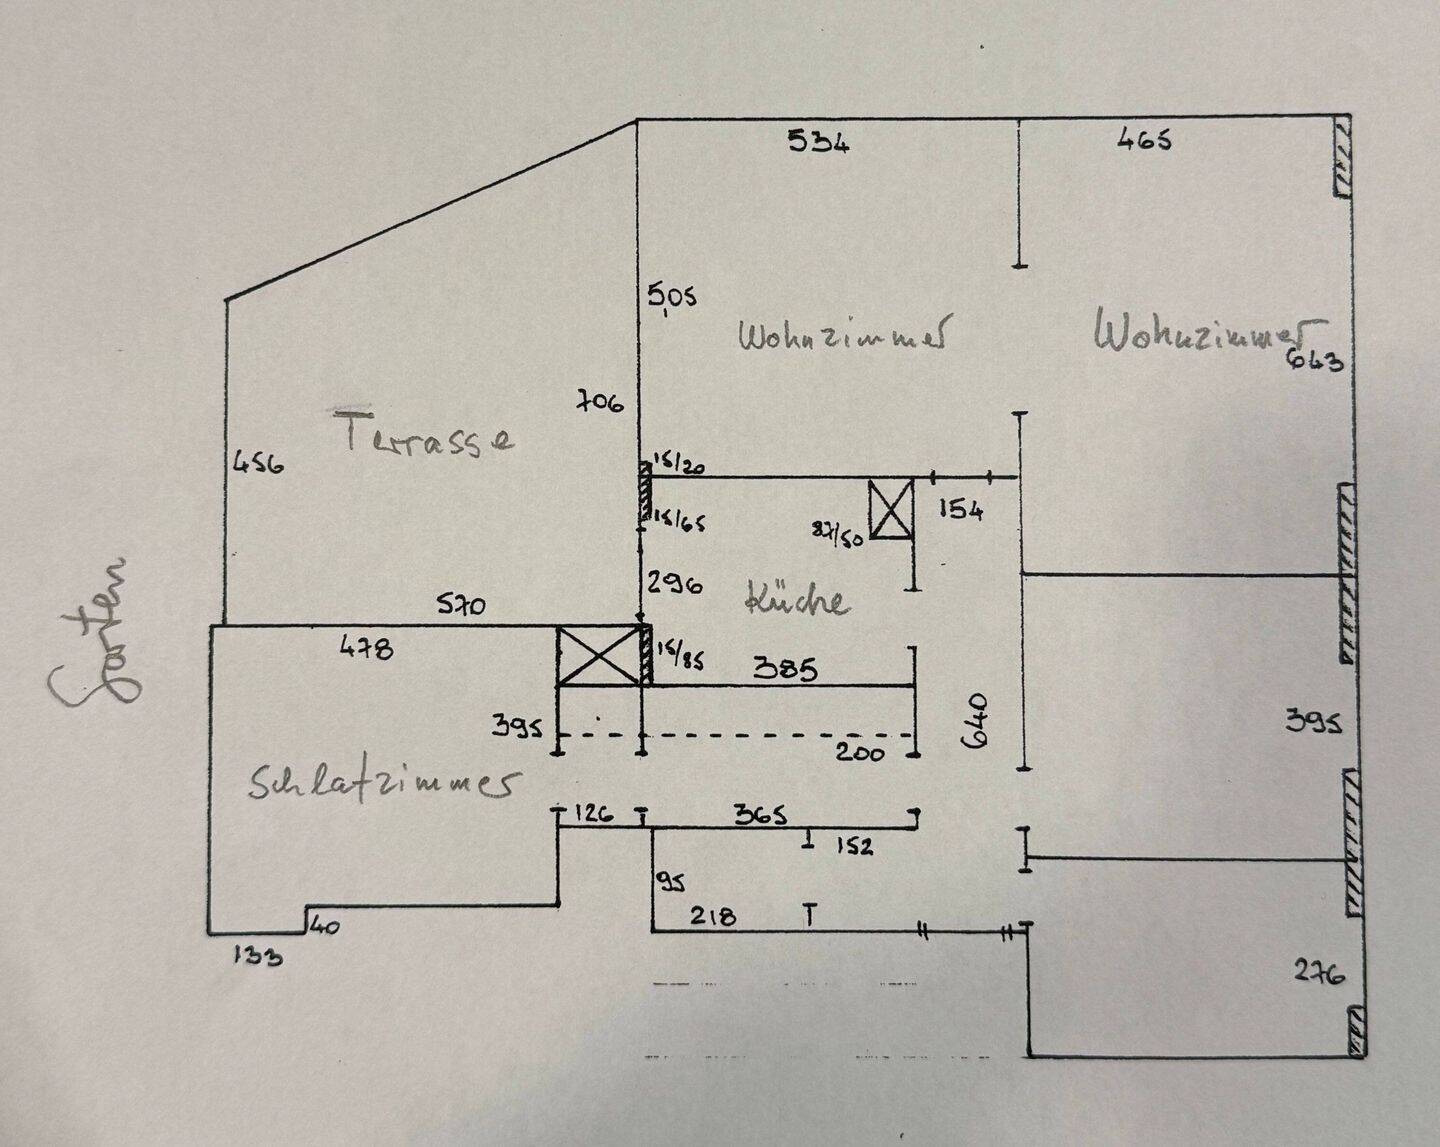 534
465
505
Wohnzimmer
Wohnzimmer
643
706
Terrasse
456
15/20
15/65
154
87/50
296
Küche
Garten
570
478
15/85
385
395
200
640
395
Schlafzimmer
126
365
152
95
218
40
133
276